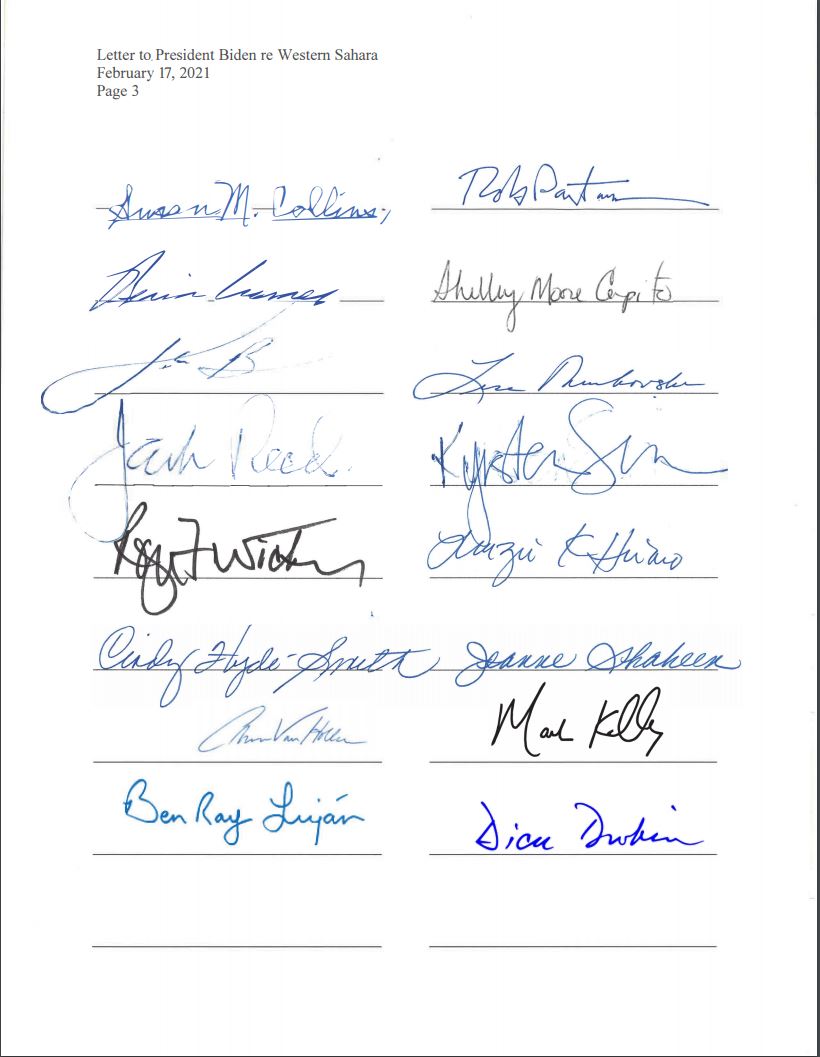 Letter to President Biden re Western Sahara
February 17, 2021
Page 3
Susan M. Collins, Rob Portman
Shelley Moore Capito
Lisa Murkowski
Jack Reed Kyrsten Sin
Roger F Wicker Mazie K Hirono
Cindy Hyde-Smith Jeanne Shaheen
Chris Van Hollen Mark Kelly
Ben Ray Luján Dick Durbin